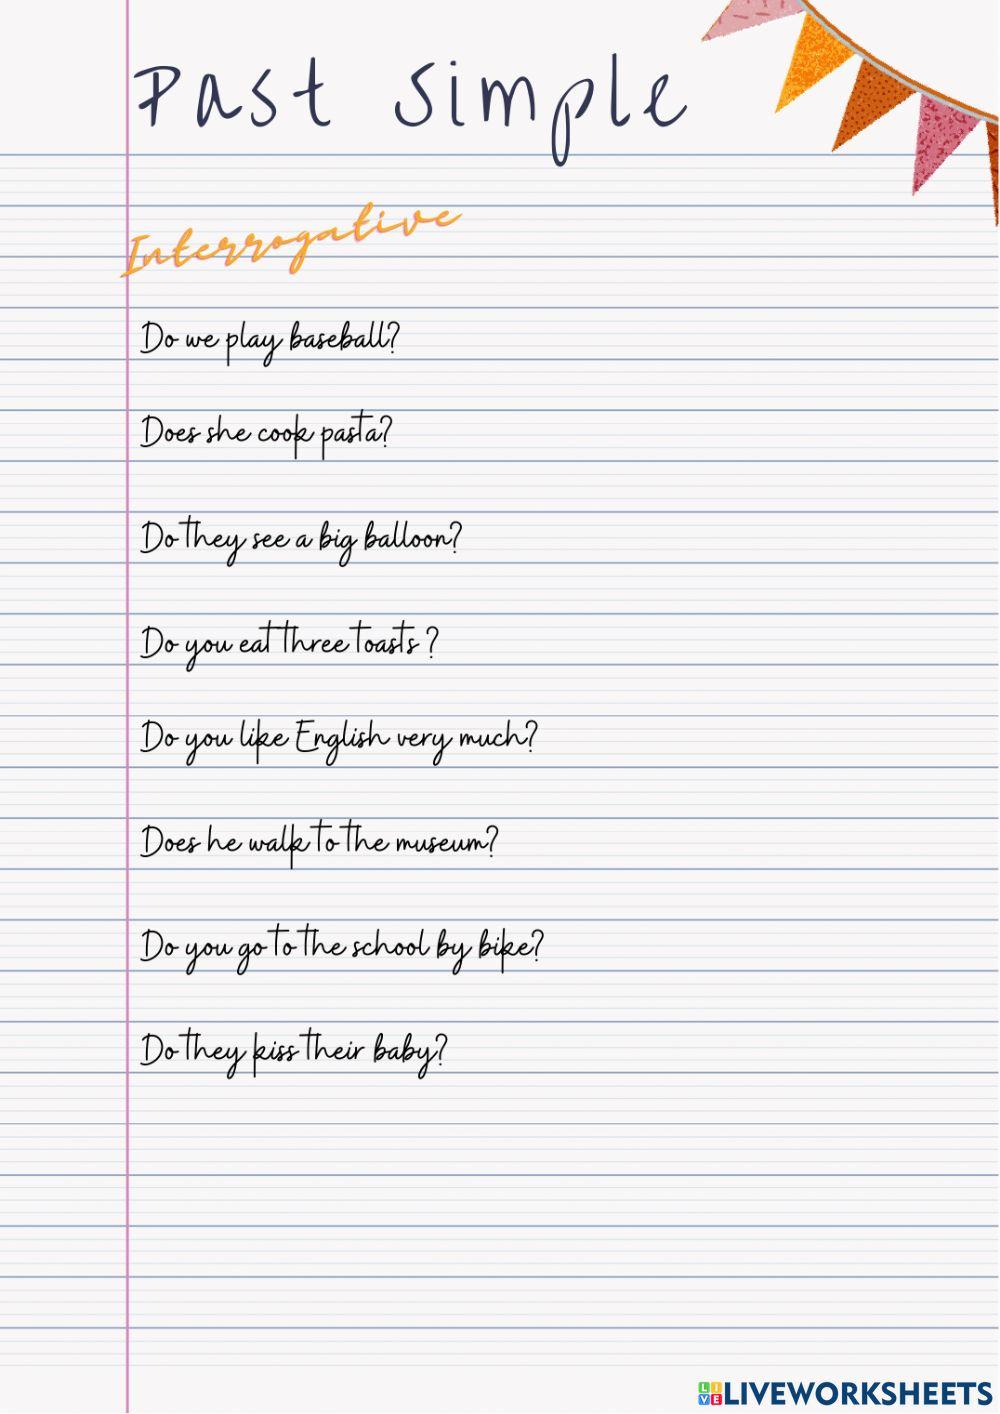 Past Simple
Interrogative
Do we play baseball?
Does she cook pasta?
Do they see a big balloon?
Do you eat three toasts ?
Do you like English very much?
Does he walk to the museum?
Do you go to the school by bike?
Do they kiss their baby?
LIVE LIVEWORKSHEETS